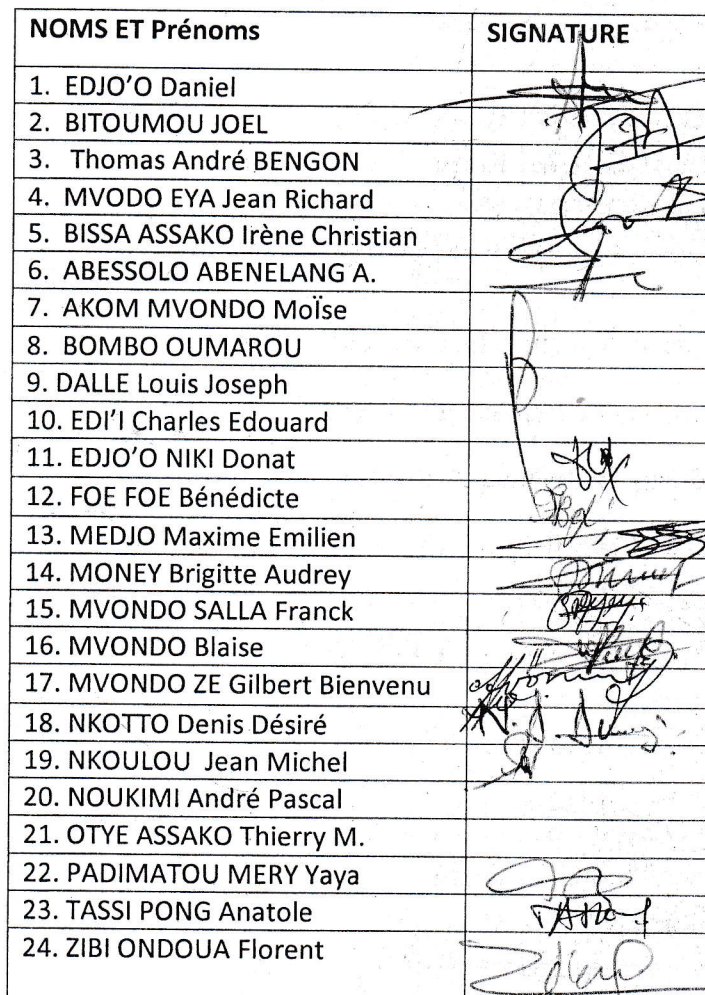 NOMS ET Prénoms SIGNATURE
1. EDJO'O Daniel
2. BITOUMOU JOEL
3. Thomas André BENGON
4. MVODO EYA Jean Richard
5. BISSA ASSAKO Irène Christian
6. ABESSOLO ABENELANG A.
7. AKOM MVONDO MoÏse
8. BOMBO OUMAROU
9. DALLE Louis Joseph
10. EDI'I Charles Edouard
11. EDJO'O NIKI Donat
12. FOE FOE Bénédicte
13. MEDJO Maxime Emilien
14. MONEY Brigitte Audrey
15. MVONDO SALLA Franck
16. MVONDO Blaise
17. MVONDO ZE Gilbert Bienvenu
18. NKOTTO Denis Désiré
19. NKOULOU Jean Michel
20. NOUKIMI André Pascal
21. OTYE ASSAKO Thierry M.
22. PADIMATOU MERY Yaya
23. TASSI PONG Anatole
24. ZIBI ONDOUA Florent